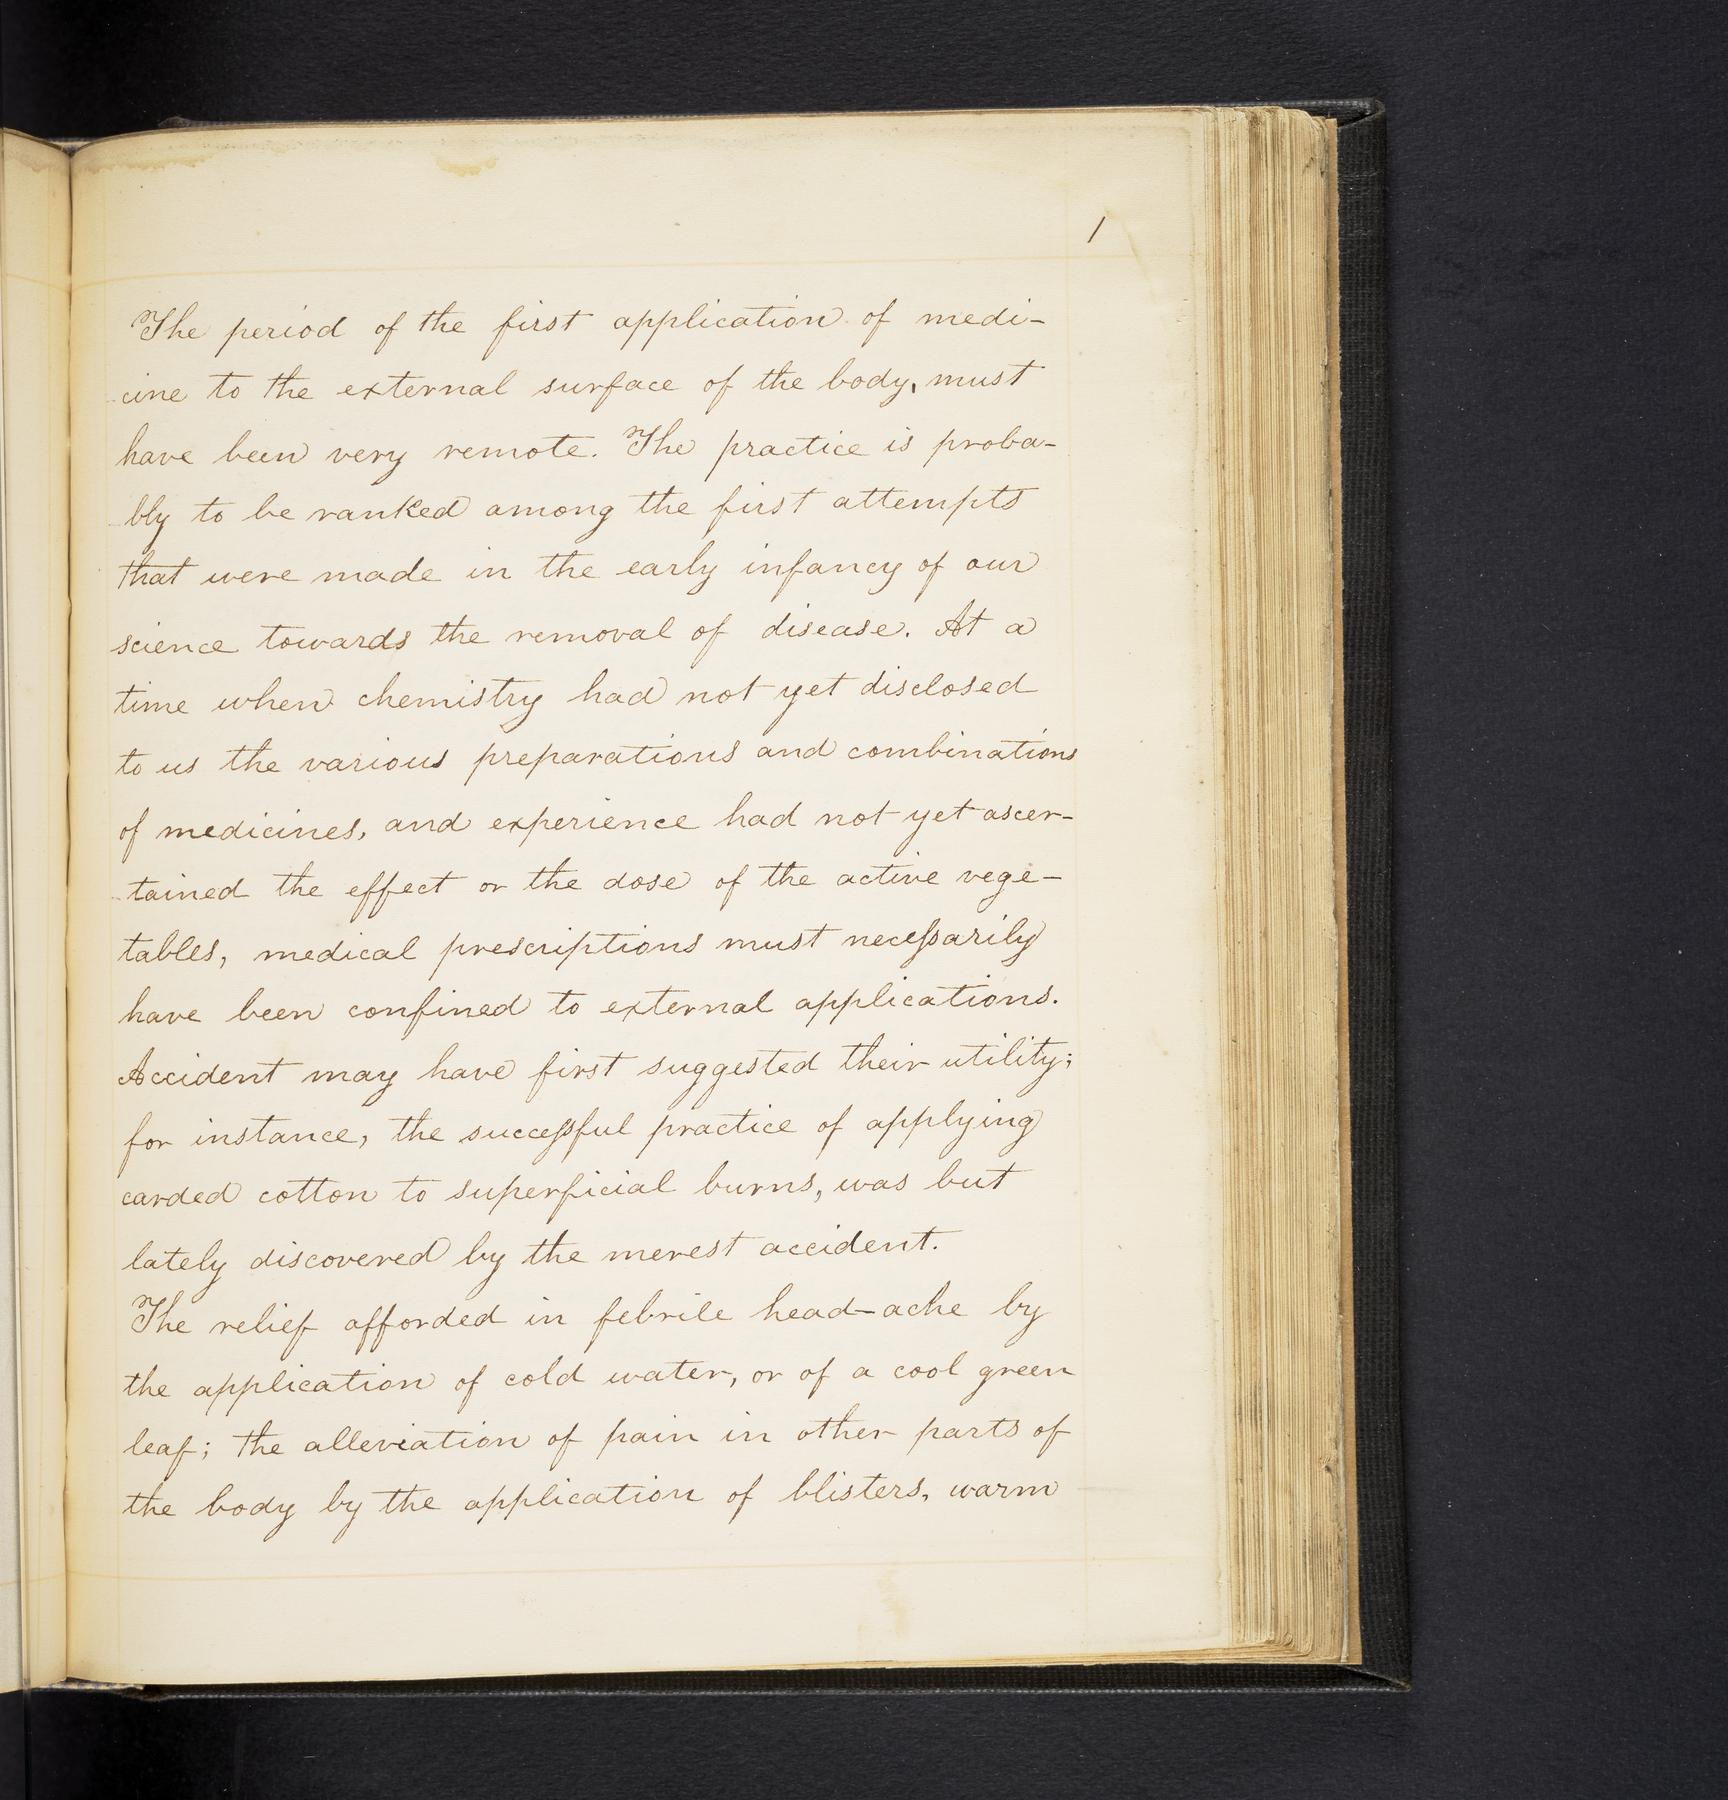 1
The period of the first application of medi-
cine to the external surface of the body, must
have been very remote. The practice is proba-
bly to be ranked among the first attempts
that were made in the early infancy of our
science towards the removal of disease. At a
time when chemistry had not yet disclosed
to us the various preparations and combinations
of medicines, and experience had not yet ascer-
tained the effect or the dose of the active vege-
tables, medical prescriptions must neceſsarily
have been confined to external applications.
Accident may have first suggested their utility;
for instance, the succeſsful practice of applying
carded cotton to superficial burns, was but
lately discovered by the merest accident.
The relief afforded in febrile head-ache by
the application of cold water, or of a cool green
leaf; the alleviation of pain in other parts of
the body by the application of blisters, warm